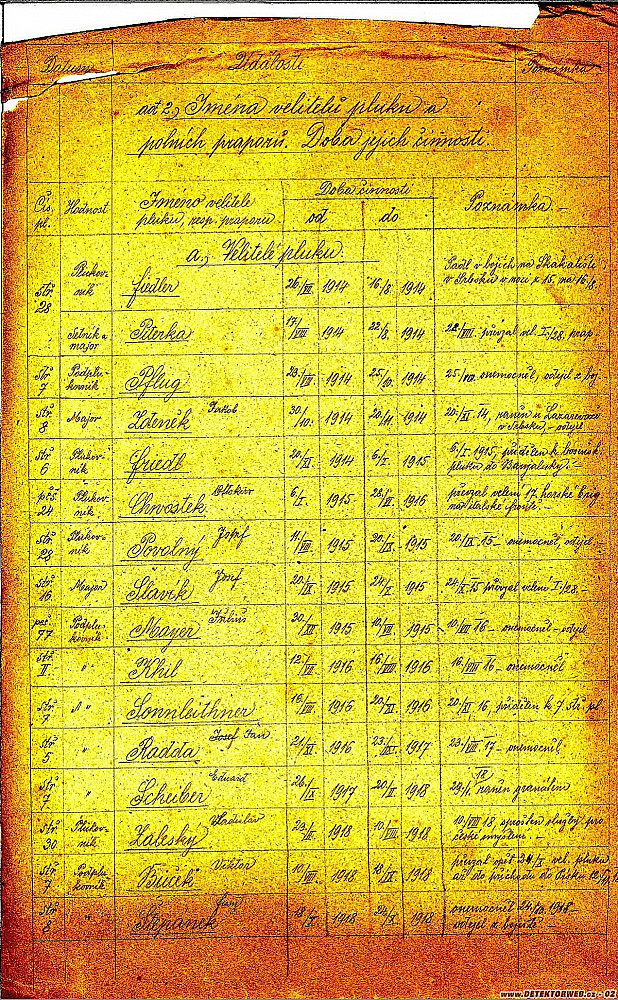 Datum Události Poznámka
ad 2., Jména velitelů pluku a
polních praporů. Doba jejich činnosti.
Čís. pl. Hodnost Jméno velitele pluku, resp. praporu Doba činnosti od do Poznámka.
a., Velitelé pluku.
Stř 28 Plukovník Fiedler 26/VII 1914 16/8. 1914 Padl v bojích na v Srbsku v noci z 15. na 16./8.
Setník a major Piterka 17/VIII 1914 22/8. 1914 22/VIII. převzal vel. I./28. prap.
Stř 7 Podplukovník Pflug 23/VIII 1914 25/10. 1914 onemocněl, odejel z boj.
Stř 8 Major Zdeněk Jakob 30/10. 1914 20/11. 1914 20./XI 14, raněn u v Srbsku, odejel
Stř 6 Plukovník Friedl 20/XI 1914 6/I 1915 6./I. 1915, přidělen k bosensk. pluku do Banjaluky.
pěš. 24 Plukovník Chwostek Ottokar 6/I. 1915 1916 převzal velení 17. horské brig. na italské frontě.
Stř 28 Plukovník Povalný Josef 1915 20/IX. 1915 20/IX. 15 onemocněl, odejel
Stř 16 Major Slavík Josef 20/IX 1915 1915 převzal velení I./28.
pěš. 77 Podplukovník Mayer Julius 1915 10/VIII 1915 10/VIII 16 - onemocněl - odejel
Stř II " Khil 1916 16/VIII 1916 16./VIII 16 - onemocněl
Stř 7 " Sonnleithner 16/VIII 1916 20/XI 1916 20/XI. 16, přidělen k 7. stř. pl.
Stř 5 " Radda Josef Jan 21/XI 1916 1917 23./VIII. 17 - onemocněl.
Stř 7 " Scheiber Eduard 1917 1918 18 raněn granátem
Stř 30 Plukovník Zaleský Ladislav 1918 10/VIII 1918 10./VIII 18. sproštěn služby pro české smýšlení.
Stř 7 Podplukovník Buček Viktor 10/VIII 1918 18/X 1918 převzal opět vel. pluku až do příchodu do
Stř 8 " Štěpánek 18/X 1918 24/X 1918 onemocněl 24/10. 1918 - odejel z bojiště
www.DETEKTORWEB.cz - 02